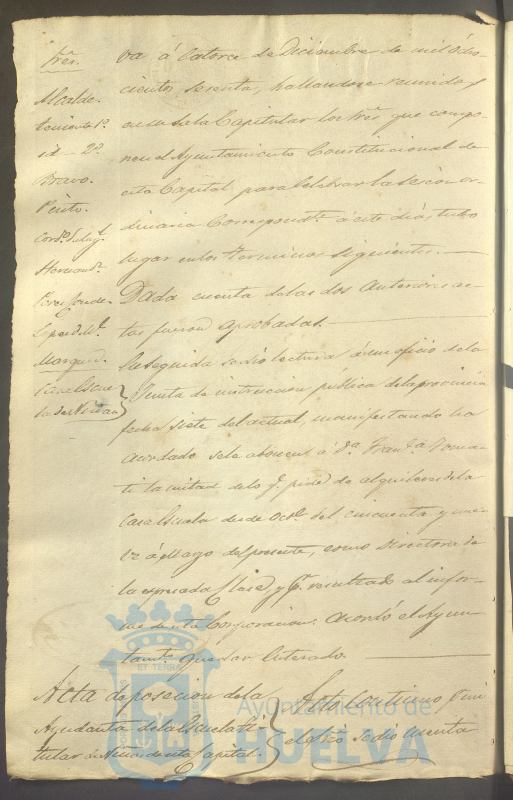 Sres.
Alcalde.
teniente 1º
id – 2º
Bravo.
Pinto.
Hernandz.
Lopez d. Ml.
Marquez.
Casa Escue-
la de Niñas
va á Catorce de Diciembre de mil Ocho-
cientos Sesenta, hallandose reunidos
en su Sala Capitular los Sres que compo-
nen el Ayuntamiento Constitucional de
esta Capital para celebrar la Sesion or-
dinaria correspondte á este dia, tubo
lugar en los terminos siguientes.
Dada cuenta de las dos anteriores ac-
tas fueron aprobadas.
En seguida se dio lectura á un oficio de la
Junta de instruccion pública de la provincia
fecha siete del actual, manifestando ha
acordado se le abonen á Dª Franca
la mitad de lo q. pide de alquileres de la
Casa Escuela desde Octe del cincuenta y nue-
ve á Mayo del presente, como Directora de
la espresada Clase, y pr resultado al infor-
me de esta Corporacion. Acordó el Ayun-
tamto quedar enterado.
Acta de posecion de la
Ayudanta de la Escuela
titular de Niñas de esta Capital.
Acto continuo
se dio cuenta
Ayuntamiento de
HUELVA